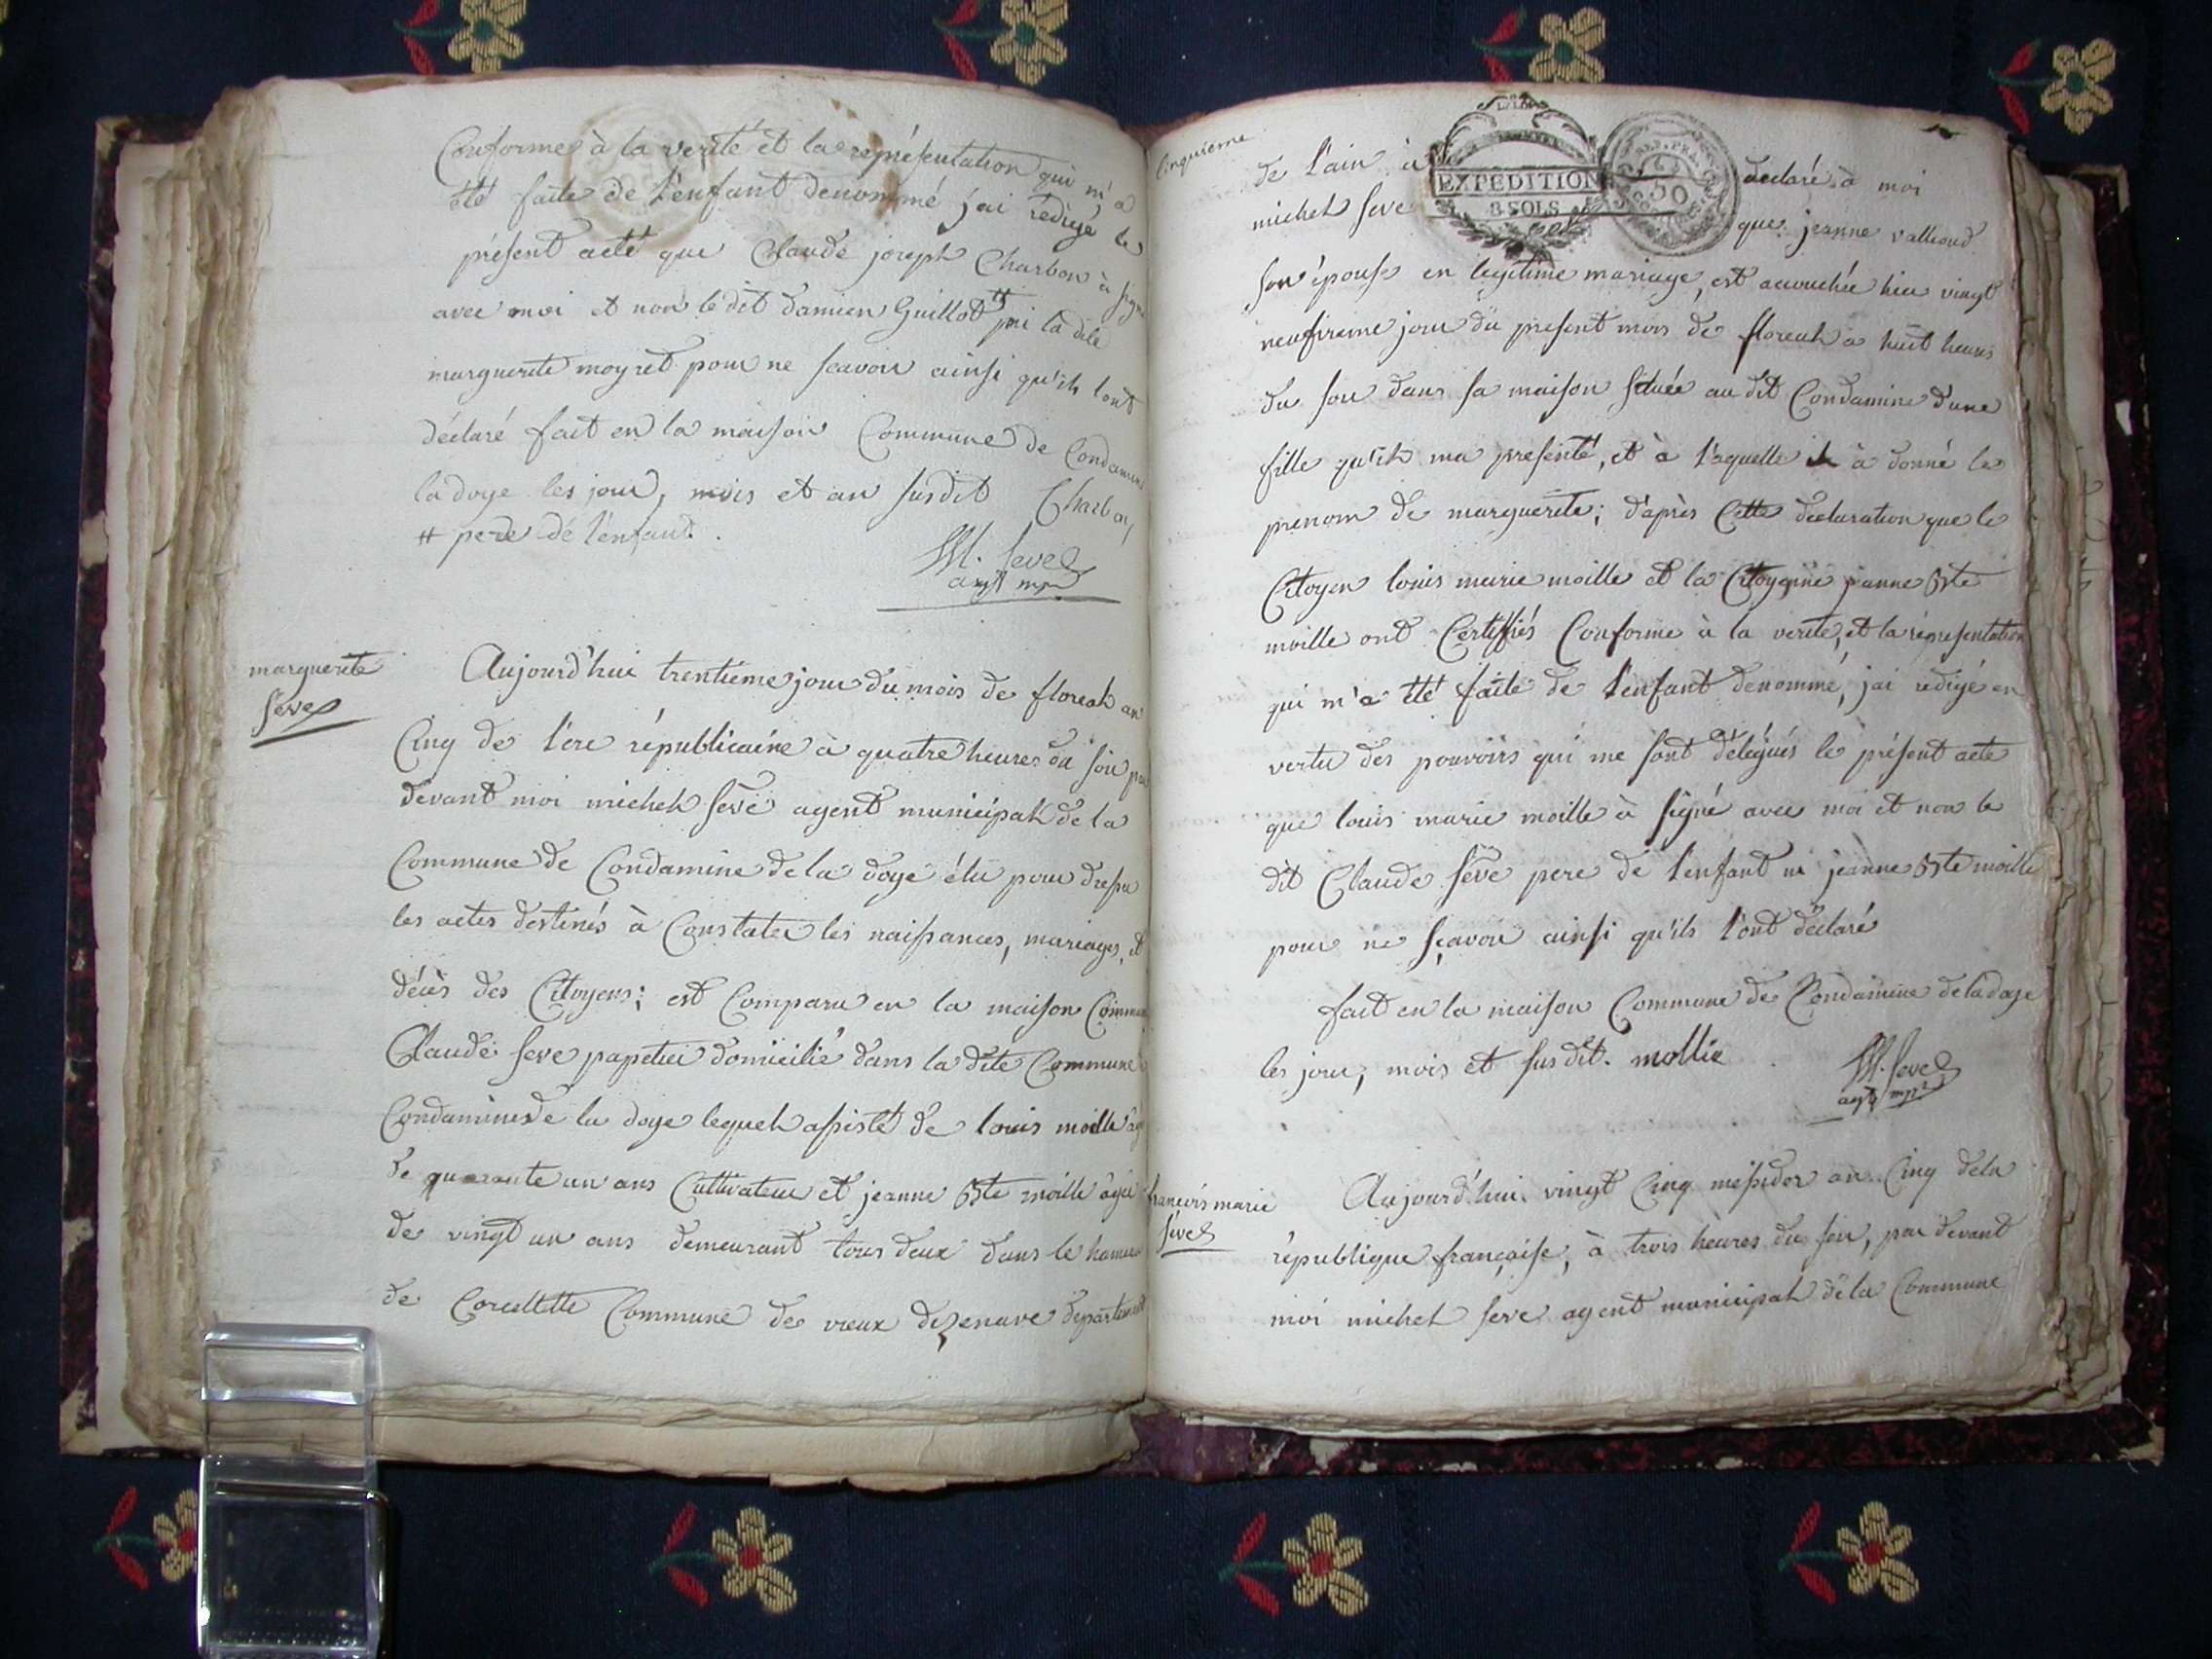 Conforme à la verité et la representation qui m'a
été faite de l'enfant denommé j'ai rédigé le
présent acte que Claude joseph Charbon à signé
avec moi et non le dit Damien Guillot # ni la dite
marguerite moyret pour ne scavoir ainsi qu'ils l'ont
déclaré fait en la maison Commune de Condamine
la doye les jour, mois et an susdit Charbon
# pere de l'enfant.
M. Seve
agt mpal
marguerite
Seve
Aujourd'hui trentieme jour du mois de floreal an
Cinq de l'ere républicaine à quatre heures du soir par
devant moi michel Seve agent municipal de la
Commune de Condamine de la doye élu pour dresser
les actes destinés à Constater les naissances, mariages, et
décès des Citoyens; est Comparu en la maison Commune
Claude Seve papetier domicilié dans la dite Commune
Condamine de la doye lequel assisté de louis moille agé
de quarante un ans Cultivateur et jeanne Bte moille agée
de vingt un ans demeurant tous deux dans le hameau
de Corcelette Commune de vieux dizenave departement
Cinquieme
de l'ain à declaré à moi
EXPEDITION
8 SOLS
REP. FRA.
50
michel Seve que jeanne vallioud
son épouse en legitime mariage, est acouchée hier vingt
neufvieme jour du present mois de floreal a huit heures
du soir dans sa maison située au dit Condamine d'une
fille qu'il ma presenté, et à l'aquelle il à donné le
prenom de marguerite; d'après Cette declaration que le
Citoyen louis marie moille et la Citoyenne jeanne Bte
moille ont Certiffiés Conforme à la verité, et la representation
qui m'a été faite de l'enfant denommé, j'ai rédigé en
vertu des pouvoirs qui me sont délégués le présent acte
que louis marie moille à signé avec moi et non le
dit Claude Seve pere de l'enfant ni jeanne Bte moille
pour ne sçavoir ainsi qu'ils l'ont déclaré
fait en la maison Commune de Condamine de la doye
les jour, mois et susdit. mollie
M. Seve
agt mpal
francois marie
Seve
Aujourd'hui vingt Cinq messidor an Cinq de la
république française, à trois heures du soir, par devant
moi michel Seve agent municipal de la Commune